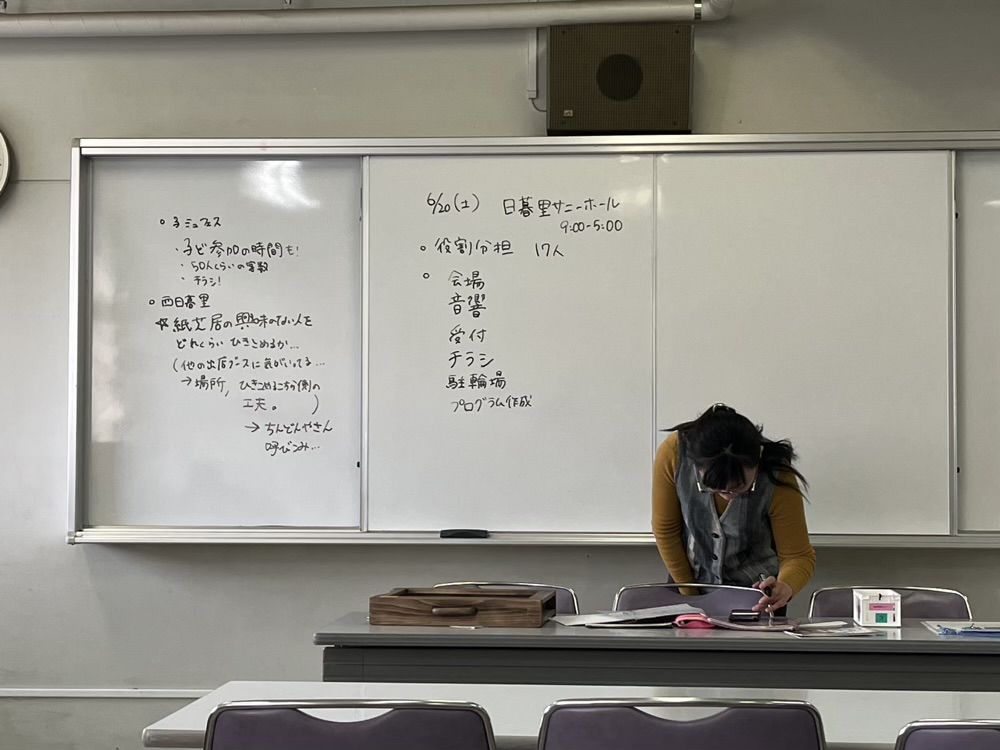 ○子ミュフェス
・子ど参加の時間も!
・50人くらいの客数
・チラシ!
○西日暮里
☆紙芝居の興味のない人を
どれくらいひきこめるか…
(他の出店ブースに気がいってる…
→場所,ひきこめるこちら側の
工夫。)
→ちんどんやさん
呼びこみ…
6/20(土) 日暮里サニーホール
9:00-5:00
○役割分担 17人
○会場
音響
受付
チラシ
駐輪場
プログラム作成